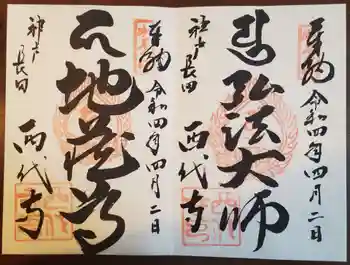 奉納 令和四年四月二日
弘法大師
神戸長田
西代寺
奉納 令和四年四月二日
地蔵尊
神戸
長田
西代寺